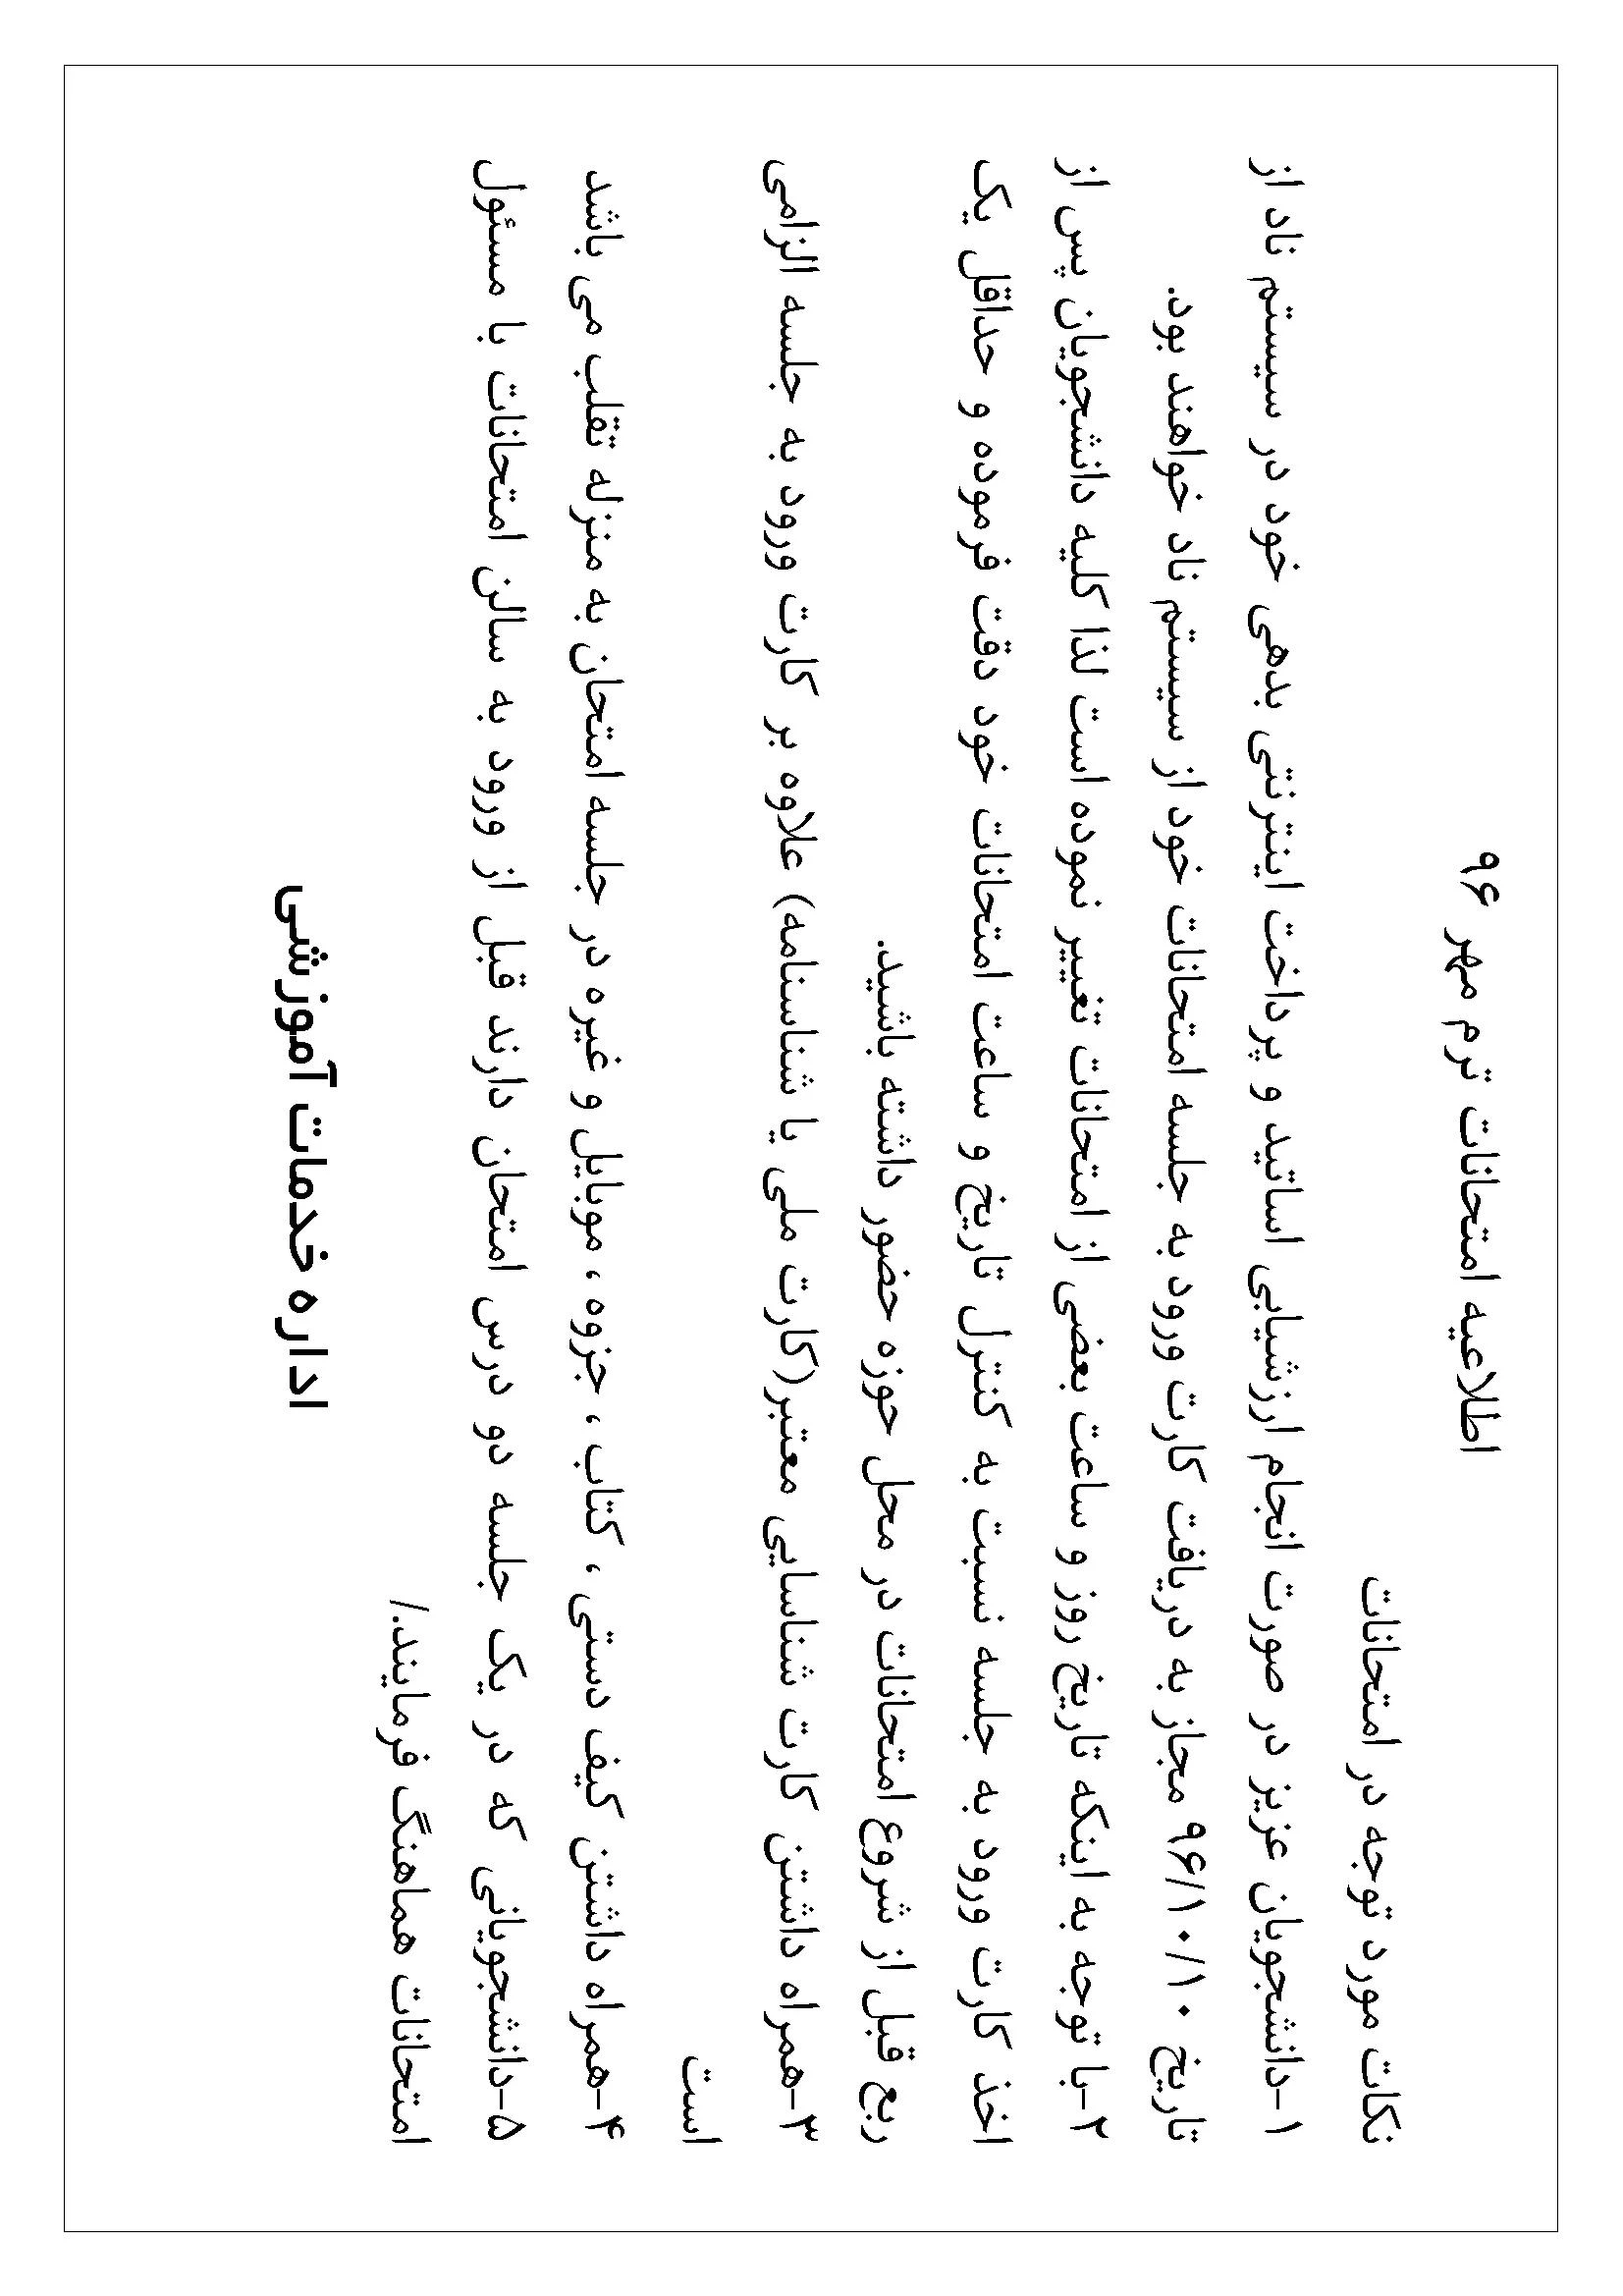 اطلاعیه امتحانات ترم مهر ۹۶
نکات مورد توجه در امتحانات
۱-دانشجویان عزیز در صورت انجام ارزشیابی اساتید و پرداخت اینترنتی بدهی خود در سیستم ناد از
تاریخ ۹۶/۱۰/۱۰ مجاز به دریافت کارت ورود به جلسه امتحانات خود از سیستم ناد خواهند بود.
۲-با توجه به اینکه تاریخ روز و ساعت بعضی از امتحانات تغییر نموده است لذا کلیه دانشجویان پس از
اخذ کارت ورود به جلسه نسبت به کنترل تاریخ و ساعت امتحانات خود دقت فرموده و حداقل یک
ربع قبل از شروع امتحانات در محل حوزه حضور داشته باشید.
۳-همراه داشتن کارت شناسایی معتبر(کارت ملی یا شناسنامه) علاوه بر کارت ورود به جلسه الزامی
است
۴-همراه داشتن کیف دستی ، کتاب ، جزوه ، موبایل و غیره در جلسه امتحان به منزله تقلب می باشد
۵-دانشجویانی که در یک جلسه دو درس امتحان دارند قبل از ورود به سالن امتحانات با مسئول
امتحانات هماهنگ فرمایند./
اداره خدمات آموزشی